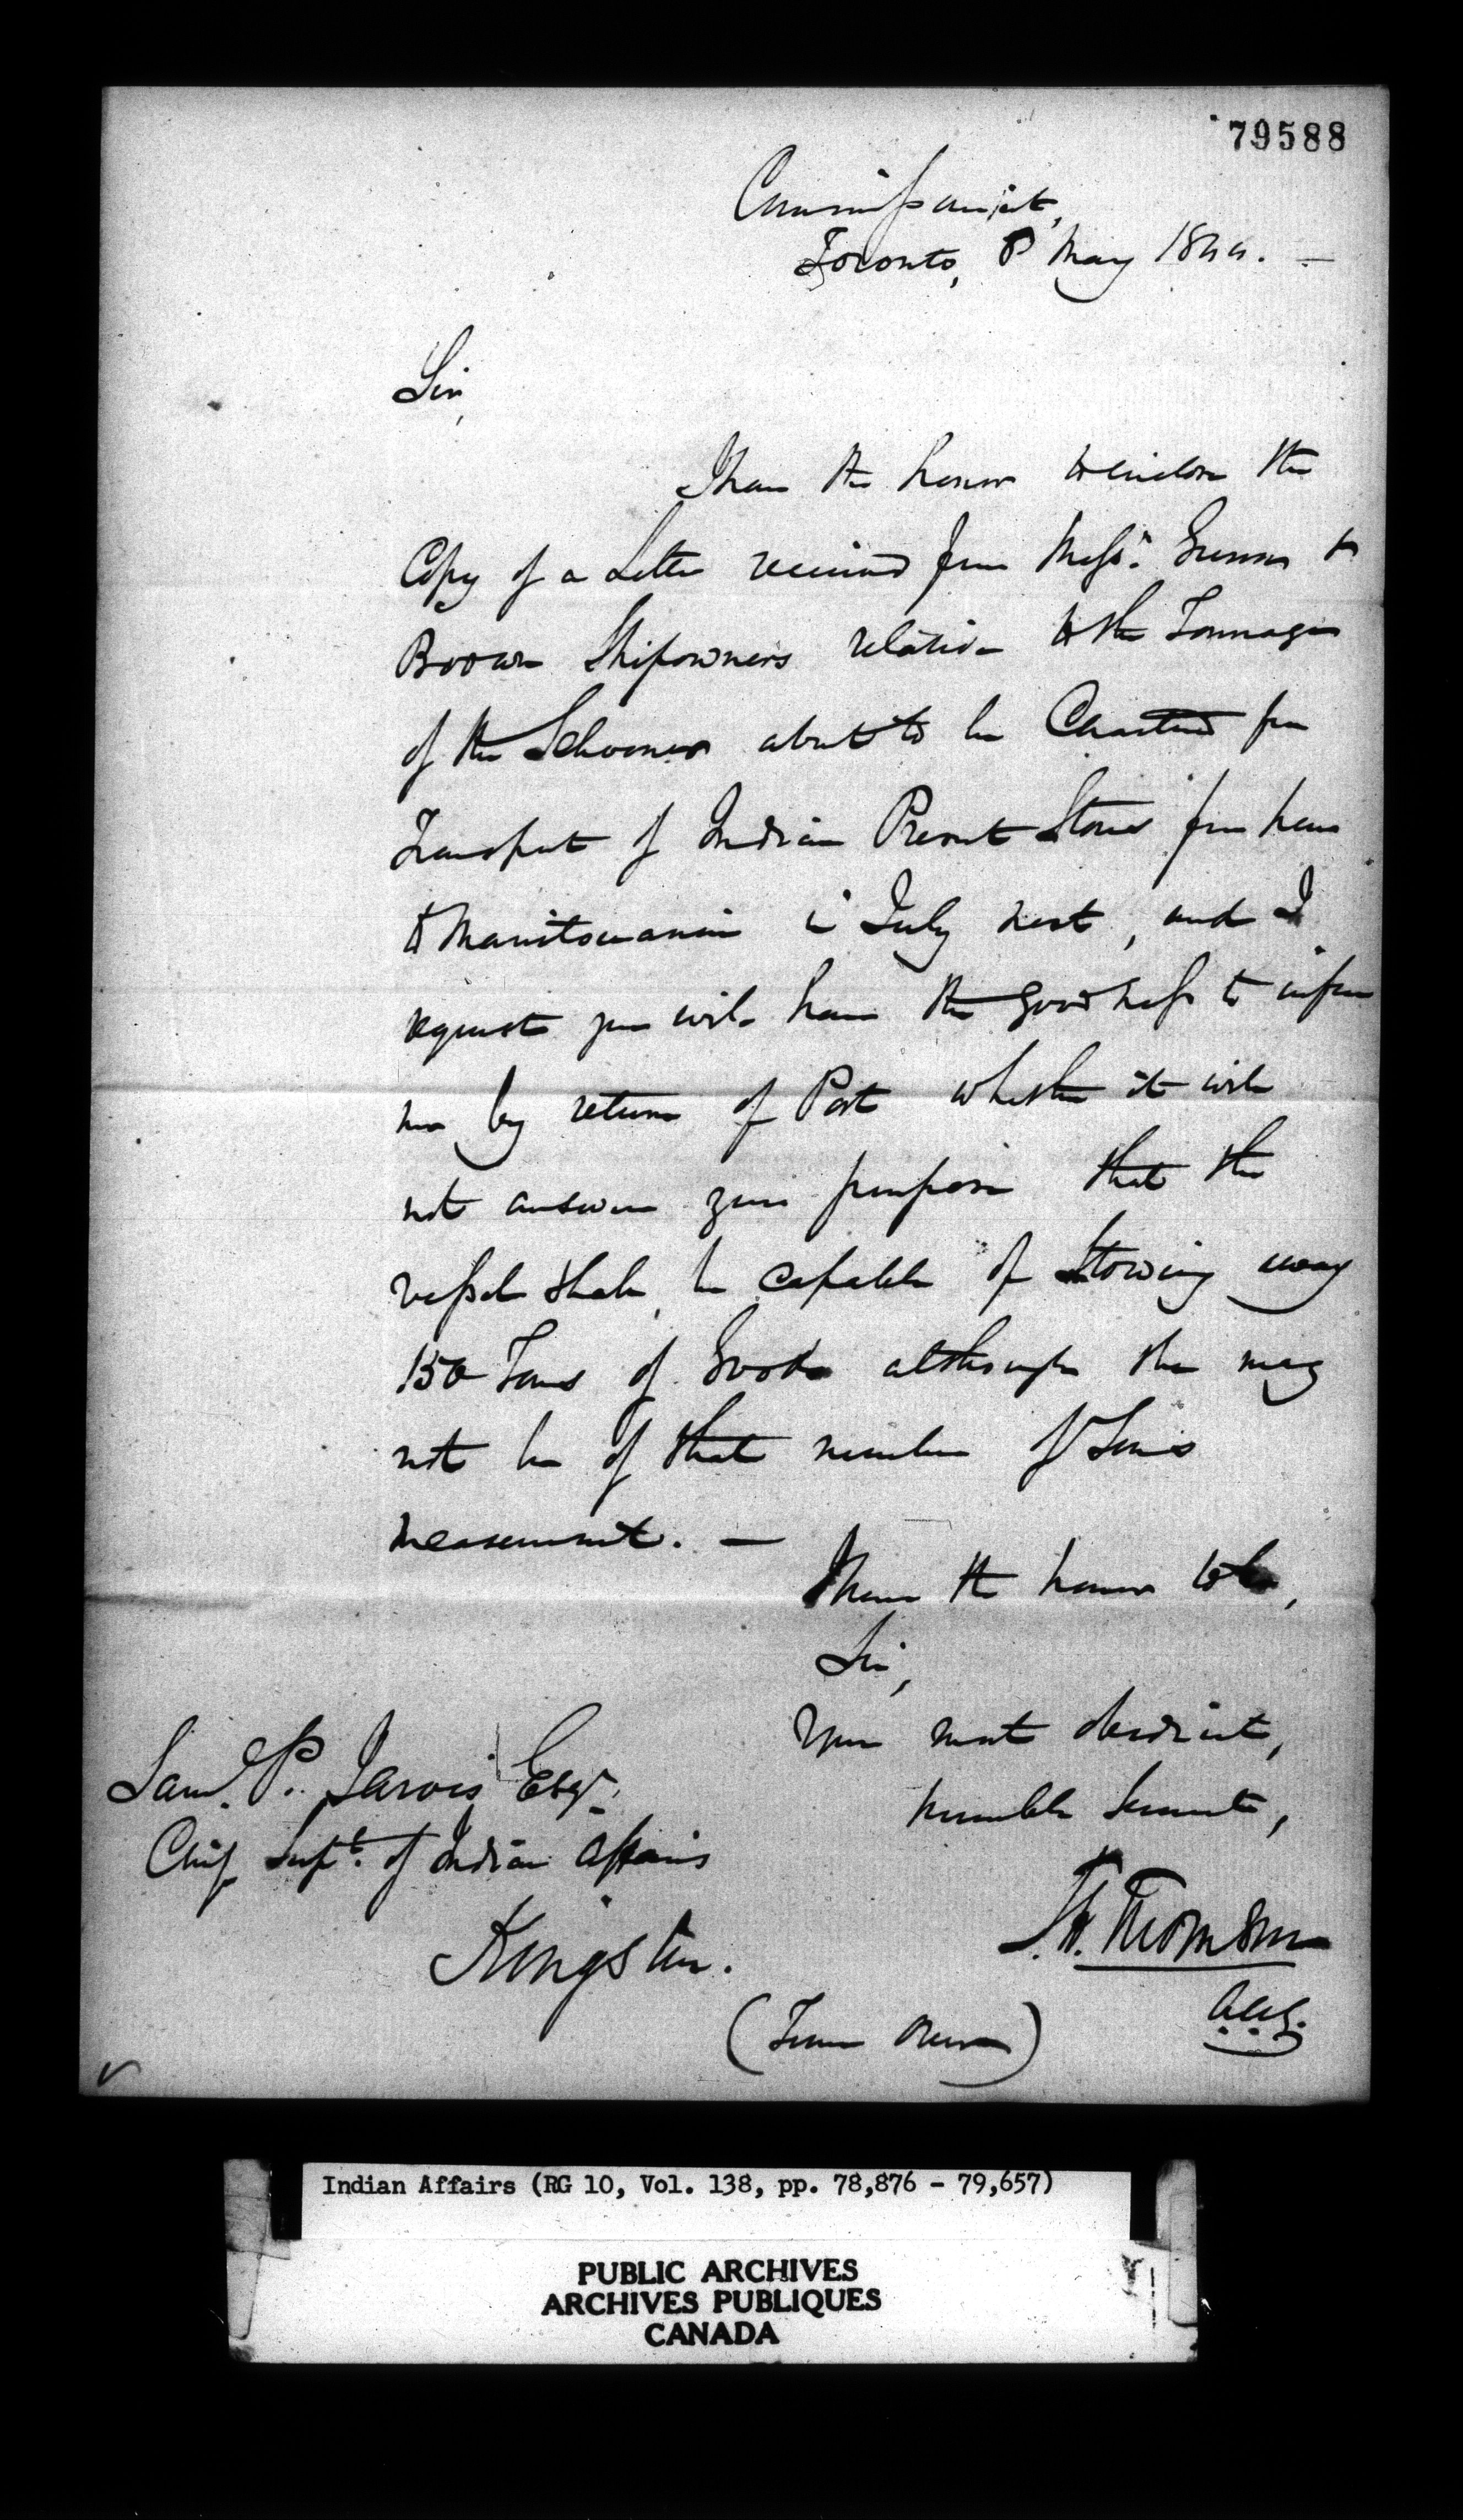 79588
Commissariat,
Toronto, 8 May 1844. —
Sir,
I have the honor to enclose the
Copy of a Letter received from Messrs. Gunn &
Brown Shipowners relative to the Tonnage
of the Schooner about to be Chartered for
Transport of Indian Present Stores from hence
to Manitowanin in July next, and I
request you will have the goodness to inform
me by return of Post whether it will
not answer your purpose that the
vessel shall be capable of Stowing away
150 Tons of Goods although she may
not be of that number of Tons
measurement. —
I have the honor to be,
Sir,
Your most obedient,
humble Servant,
Saml. P. Jarvis Esqr.
Chief Supt. of Indian Affairs
Kingston.
Thomson
A.C.G.
(Turn Over)
Indian Affairs (RG 10, Vol. 138, pp. 78,876 - 79,657)
PUBLIC ARCHIVES
ARCHIVES PUBLIQUES
CANADA